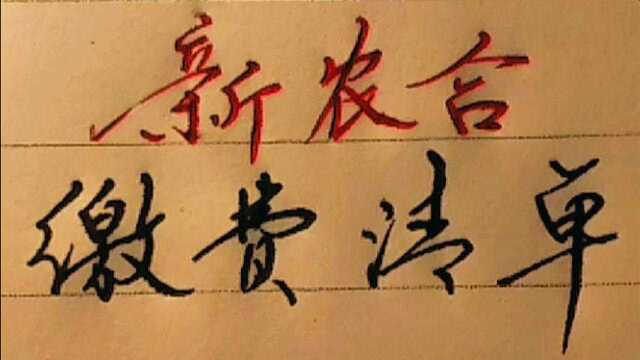 新农合
缴费清单